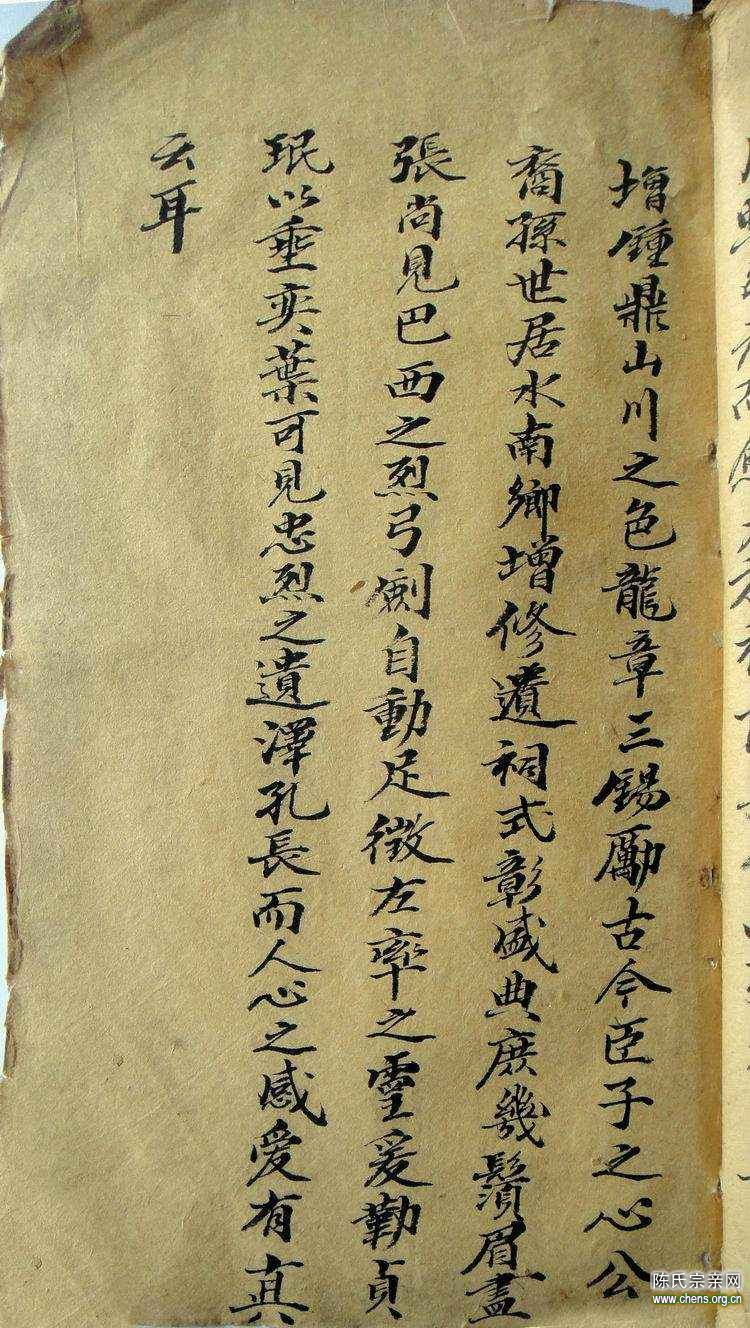 增鍾鼎山川之色龍章三錫勵古今臣子之心公
裔孫世居水南鄉增修遺祠式彰盛典庶幾鬚眉盡
張尚見巴西之烈弓劍自動足徵左率之靈爰勒貞
珉以垂奕葉可見忠烈之遺澤孔長而人心之感愛有真
云耳
陈氏宗亲网
www.chens.org.cn